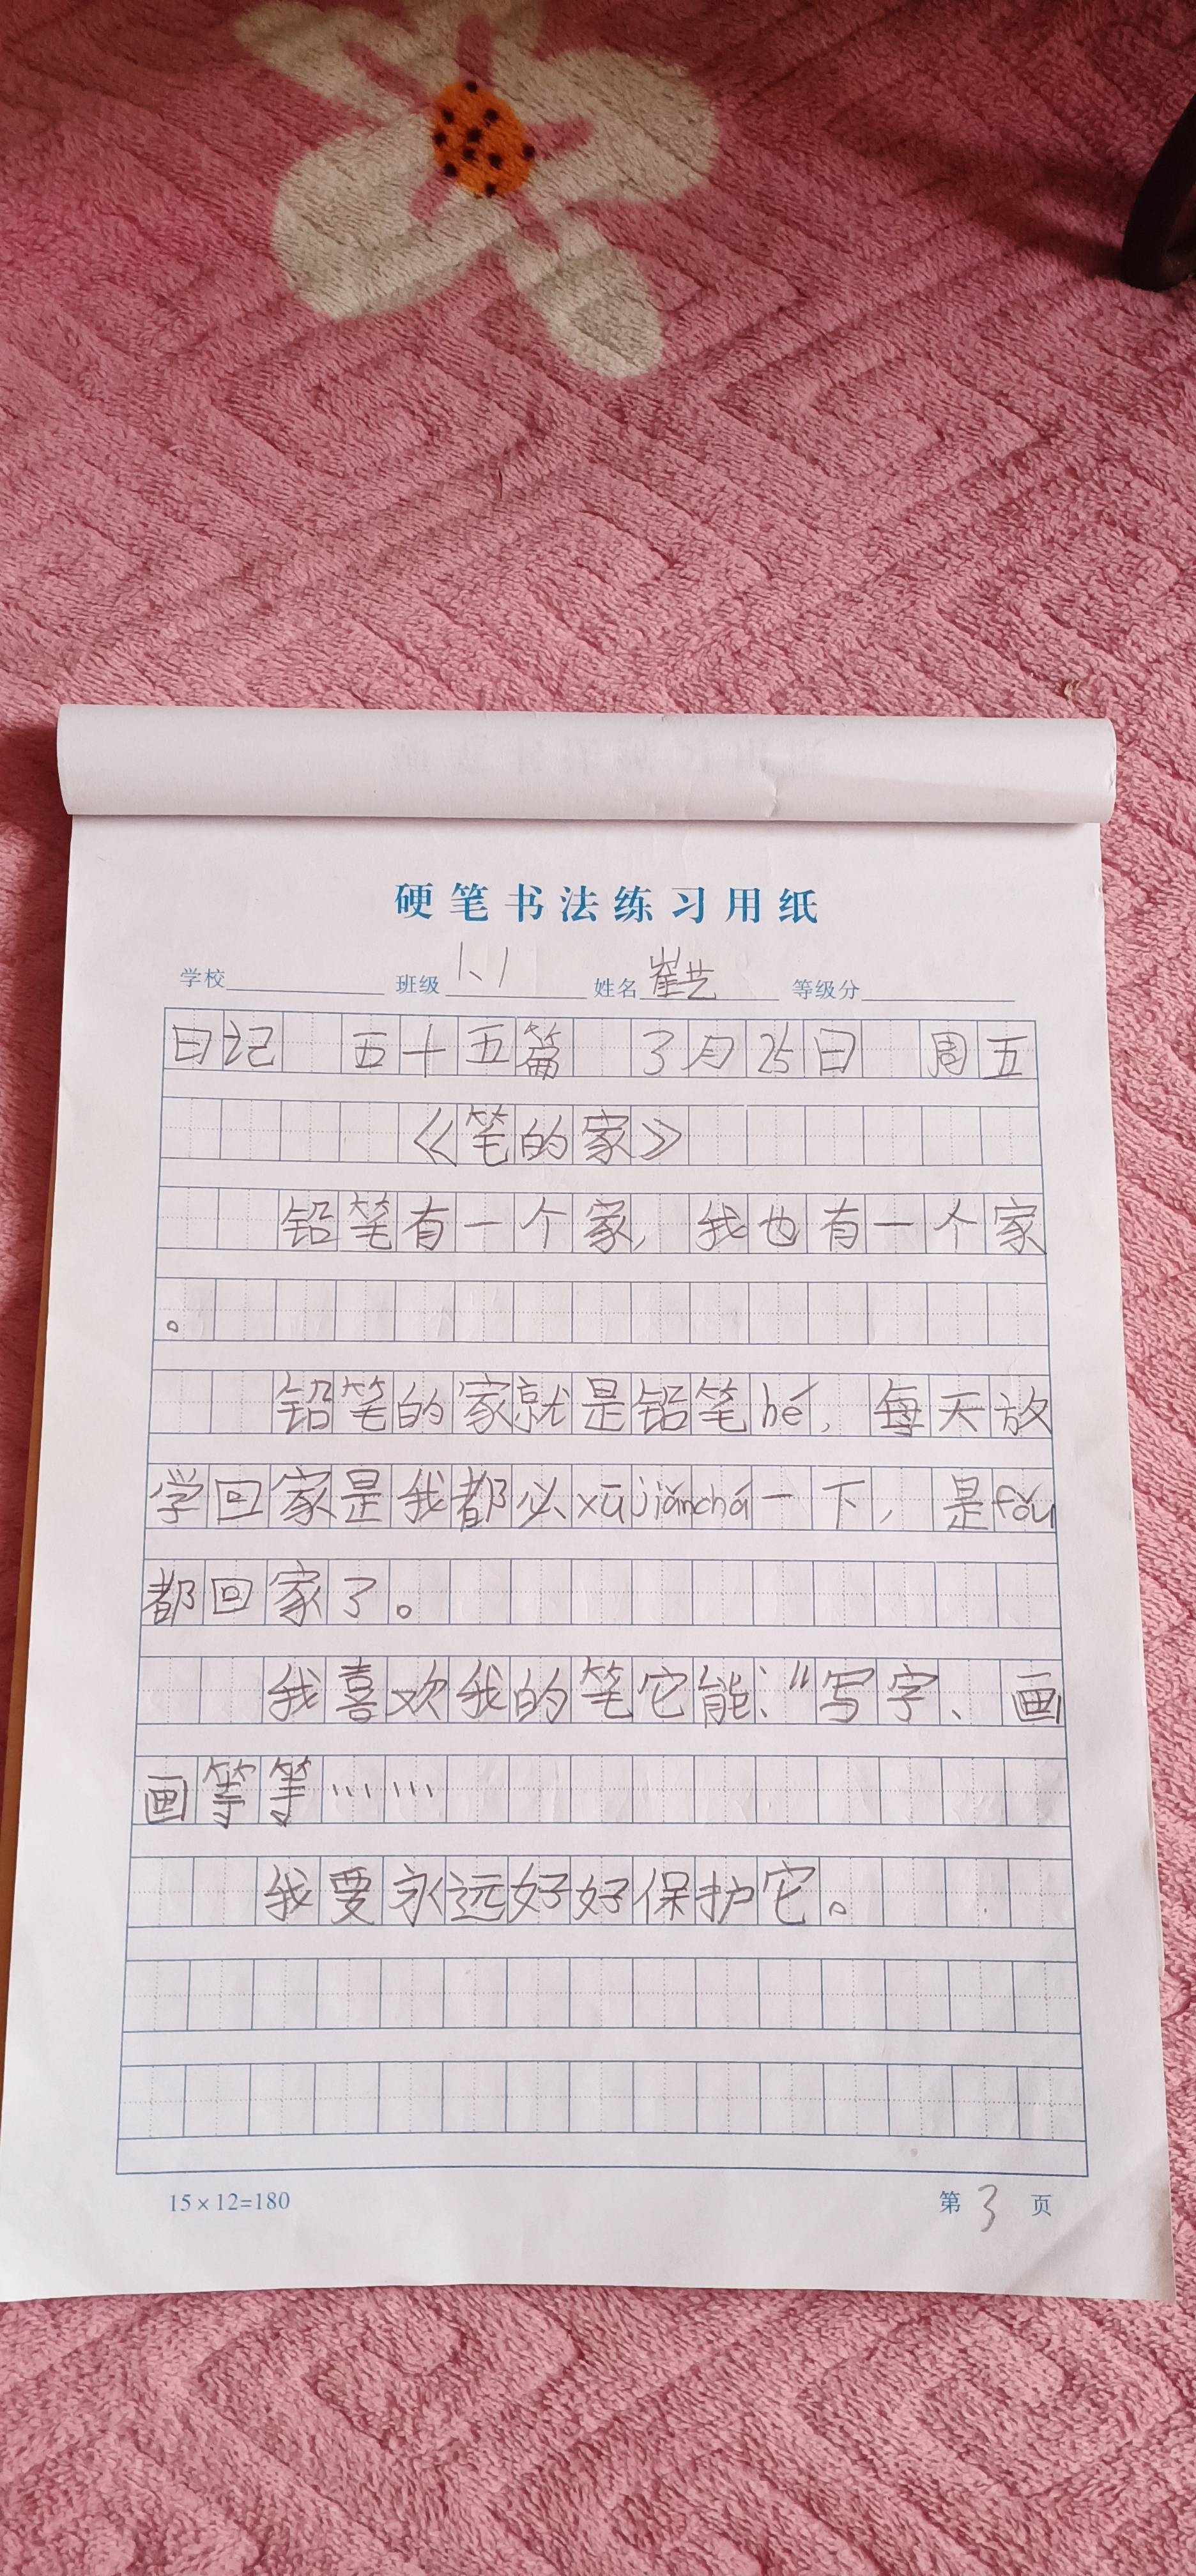 硬笔书法练习用纸
学校 班级 1、1 姓名 崔艺 等级分
日记 五十五篇 3月25日 周五
《笔的家》
铅笔有一个家，我也有一个家
。
铅笔的家就是铅笔hé，每天放
学回家是我都必xūjiǎnchá一下，是fǒu
都回家了。
我喜欢我的笔它能：“写字、画
画等等……
我要永远好好保护它。
15×12=180 第3页